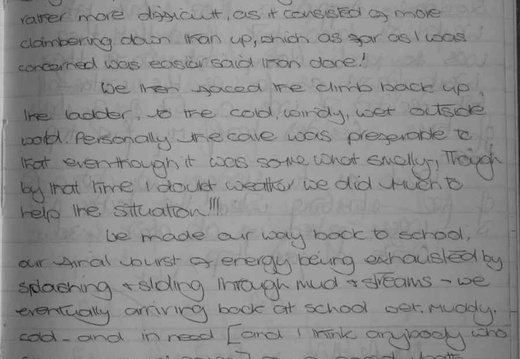 rather more difficult, as it consisted of more
clambering down than up, which as far as I was
concerned was easier said than done!
We then faced the climb back up
the ladder, to the cold, windy, wet outside
world. Personally the cave was preferable to
that eventhough it was some what smelly, Though
by that time I doubt weather we did much to
help the situation!!!
We made our way back to school,
our final burst of energy being exhausted by
splashing + sliding through mud + streams - we
eventually arriving back at school wet, muddy,
cold - and in need [and I think anybody who